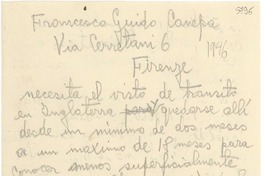 Francesco Guido Canepa
Via Cerretani 6
1946
Firenze
necesita el visto de transito
en Inglaterra para quedarse allí
desde un minimo de dos meses
a un maximo de 18 meses para
conocer menos superficialmente